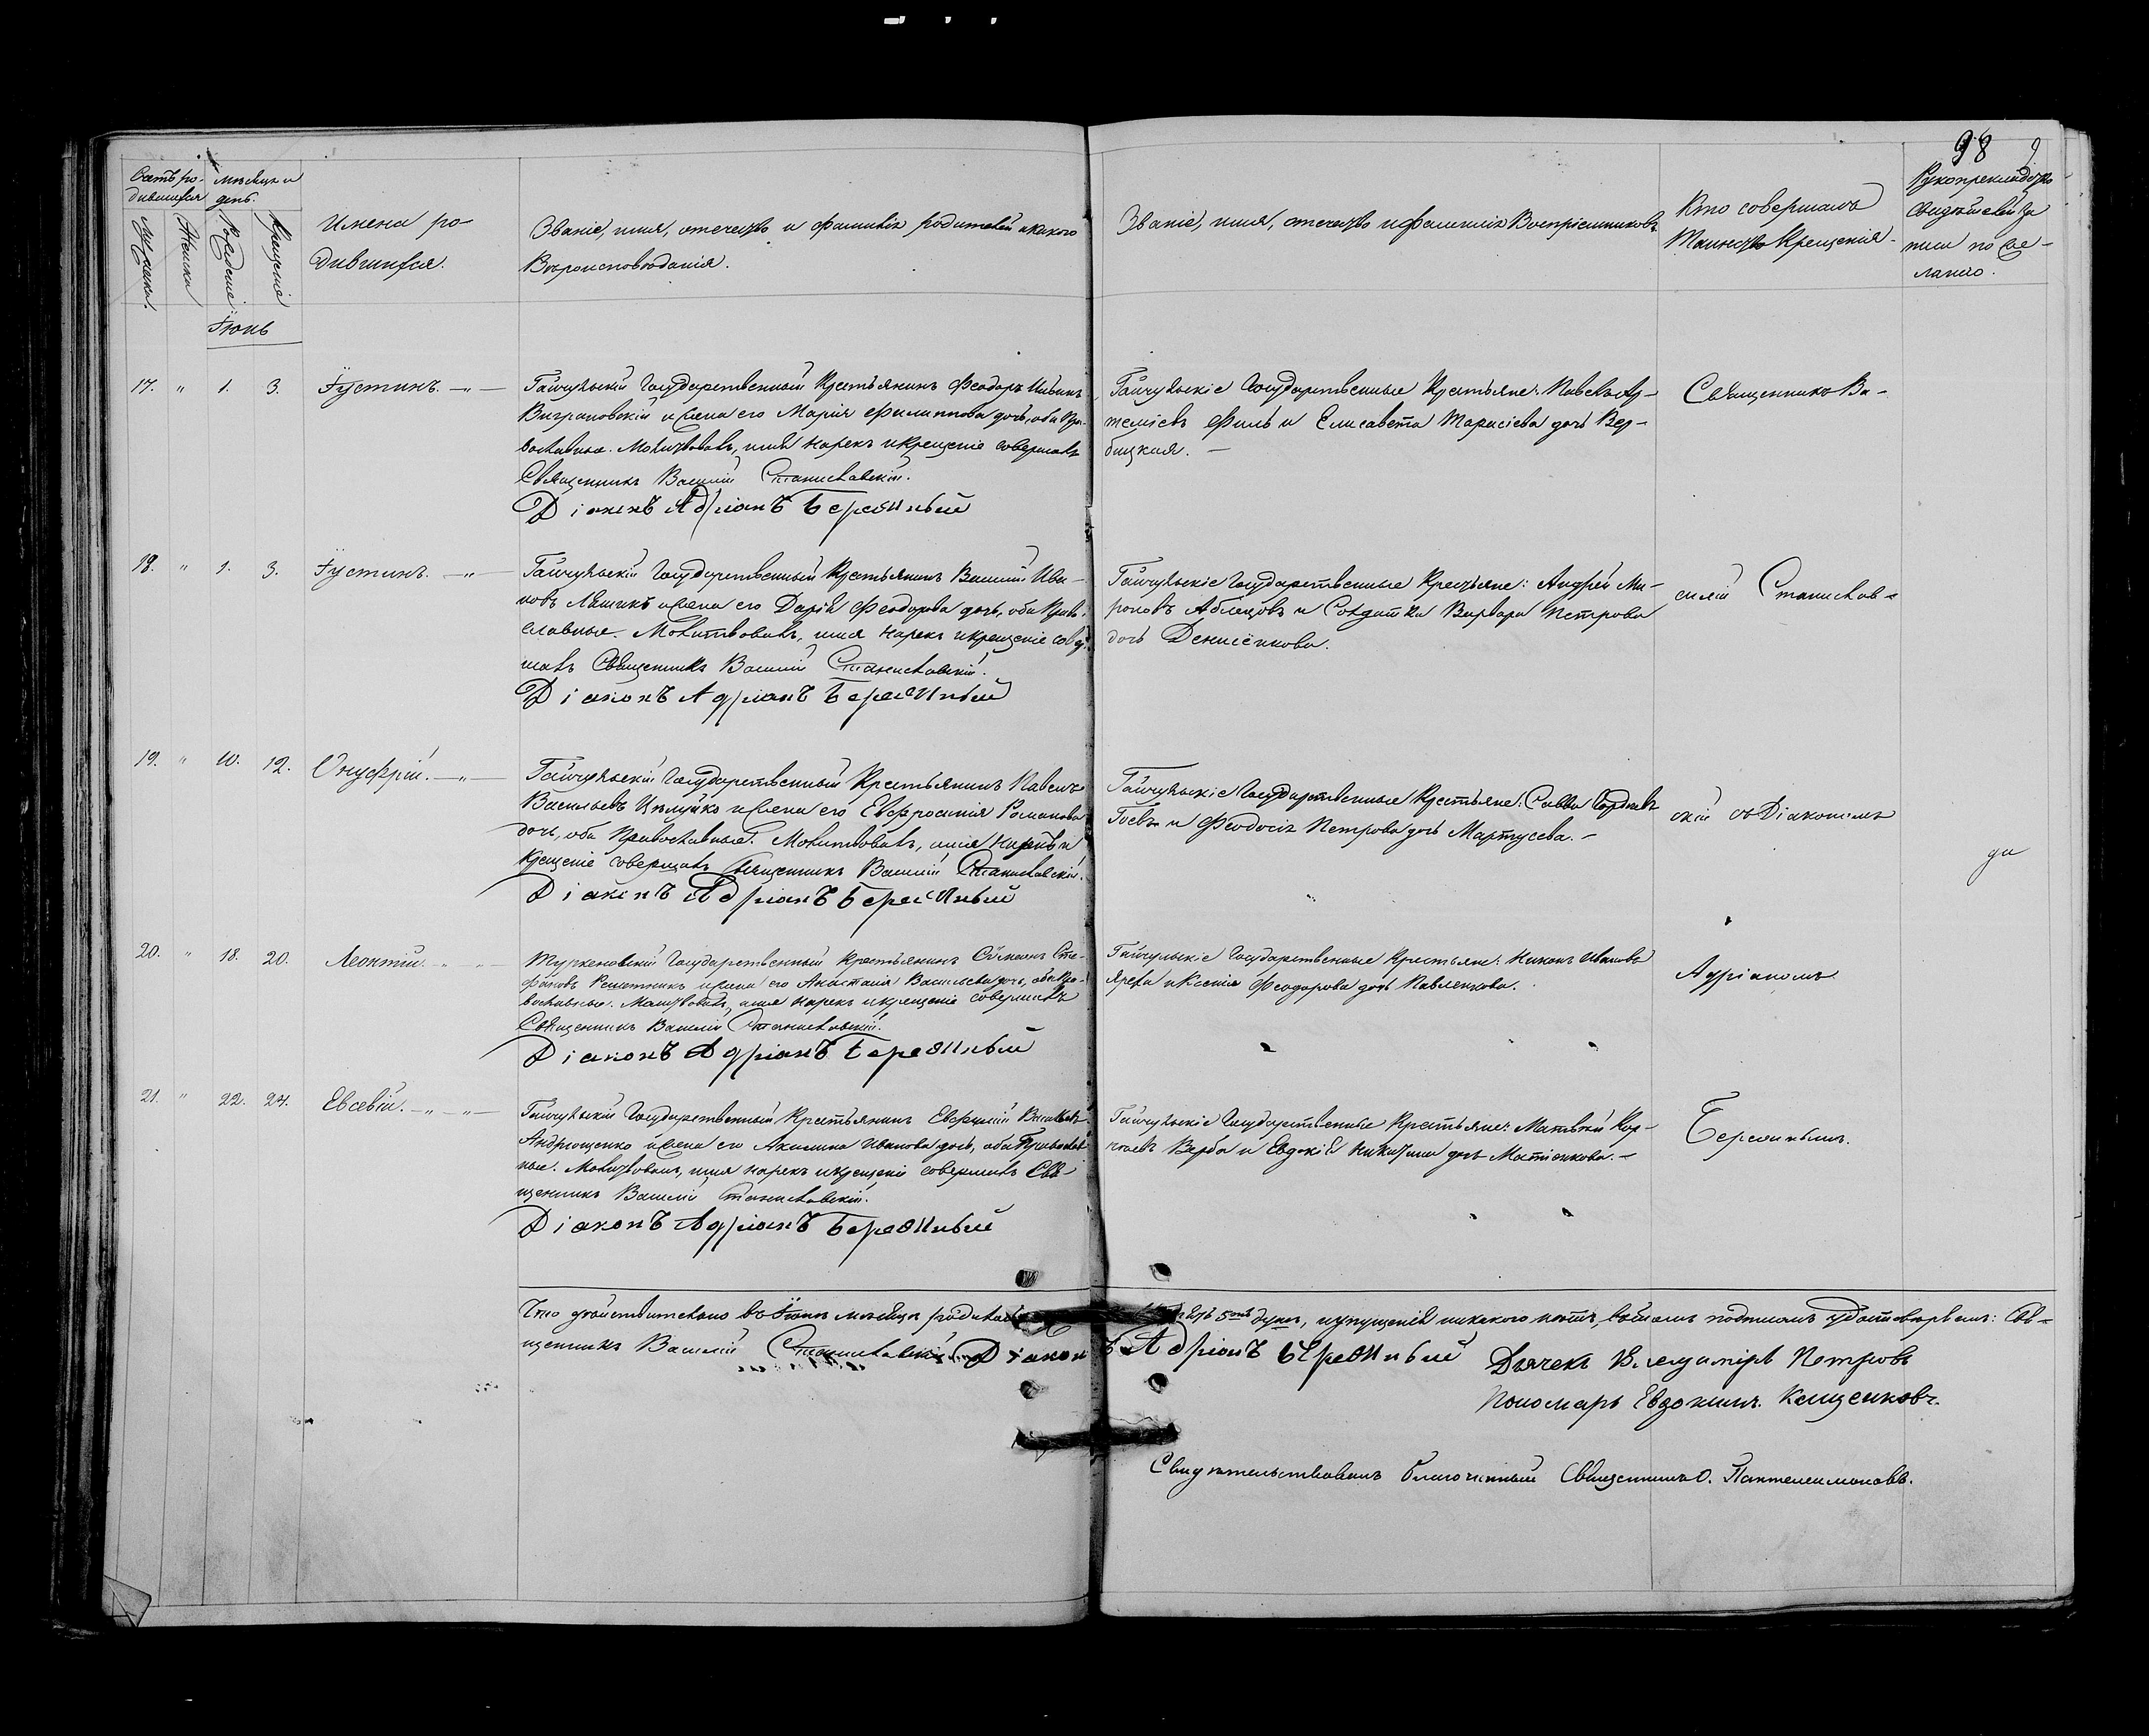 98
Счетъ ро-
дившихся
Мѣсяцъ и
день.
Мужеска.
Женска
Рожденіе.
Крещеніе
Имена ро
дившихся.
Званіе, имя, отечество и фамилія родителей и какого
Вѣроисповѣданія.
Званіе, имя, отечество и фамилія Воспріемниковъ
Кто совершалъ
Таинство Крещенія.
Рукоприкладство
Свидѣтелей за
писи по же-
ланію.
Іюнь
17. " 1. 3. Іустинъ. —"—
Гайчульскій Государственный Крестьянинъ Феодоръ
Виграновскій и жена его Марія Филиппова дочь, оба Пра-
вославные. Молитвовалъ, имя нарекъ и крещеніе совершалъ
Священникъ Василій Станиславскій.
Діаконъ Адріанъ Береинный
Гайчульскіе Государственные Крестьяне: Павелъ Ар-
теміевъ Филь и Елисавета Тарасіева дочь Вер-
бицкая. —
Священникъ Ва-
18. " 1. 3. Іустинъ. —"—
Гайчульскій Государственный Крестьянинъ Василій Ива-
новъ Ляшикъ и жена его Дарія Феодорова дочь, оба Право-
славные. Молитвовалъ, имя нарекъ и крещеніе совер-
шалъ Священникъ Василій Станиславскій.
Діаконъ Адріанъ Береинный
Гайчульскіе Государственные Крестьяне: Андрей Ми-
роновъ Аблецовъ и Солдатка Варвара Петрова
дочь Денисенкова.
силій Станислав-
19. " 10. 12. Онуфрій. —"—
Гайчульскій Государственный Крестьянинъ Павелъ
Васильевъ Цѣлуйко и жена его Евфросинія Романова
дочь, оба Православные. Молитвовалъ, имя нарекъ и
крещеніе совершалъ Священникъ Василій Станиславскій.
Діаконъ Адріанъ Береинный
Гайчульскіе Государственные Крестьяне: Савва
и Феодосія Петрова дочь Мартусева. —
скій съ Діакономъ
20. " 18. 20. Леонтій. " —
Туркеновскій Государственный Крестьянинъ Симеонъ Сте-
фановъ Решетникъ и жена его Анастасія Васильева дочь, оба Пра-
вославные. Молитвовалъ, имя нарекъ и крещеніе совершалъ
Священникъ Василій Станиславскій.
Діаконъ Адріанъ Береинный
Гайчульскіе Государственные Крестьяне: Никонъ Ивановъ
Ярема и Ксенія Феодорова дочь Павленкова.
Адріаномъ
21. " 22. 24. Евсевій. —"—"—
Гайчульскій Государственный Крестьянинъ Евфимій
Андрющенко и жена его Акилина Иванова дочь, оба Православ-
ные. Молитвовалъ, имя нарекъ и крещеніе совершалъ Свя-
щенникъ Василій Станиславскій.
Діаконъ Адріанъ Береинный
Гайчульскіе Государственные Крестьяне: Матвей Кор-
нѣевъ Верба и Евдокія Никитина дочь Матіенкова. —
Береиннымъ.
Что дѣйствительно въ Іюнѣ мѣсяцѣ родилось 5ть душъ, и пущенія никакого нѣтъ, въ томъ подписомъ удостовѣряемъ: Свя-
щенникъ Василій Станиславскій Діаконъ Адріанъ Береинный Дьячекъ Владиміръ Петровъ
Пономарь Евдокимъ Кащенковъ.
Свидѣтельствовалъ благочинный Священникъ О. Пантелеимоновъ.